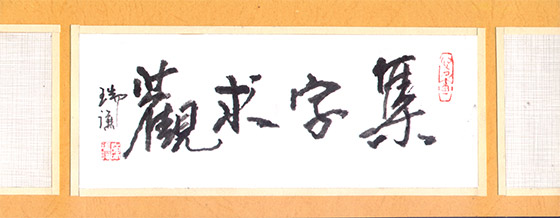 集字求觀
瑞謙